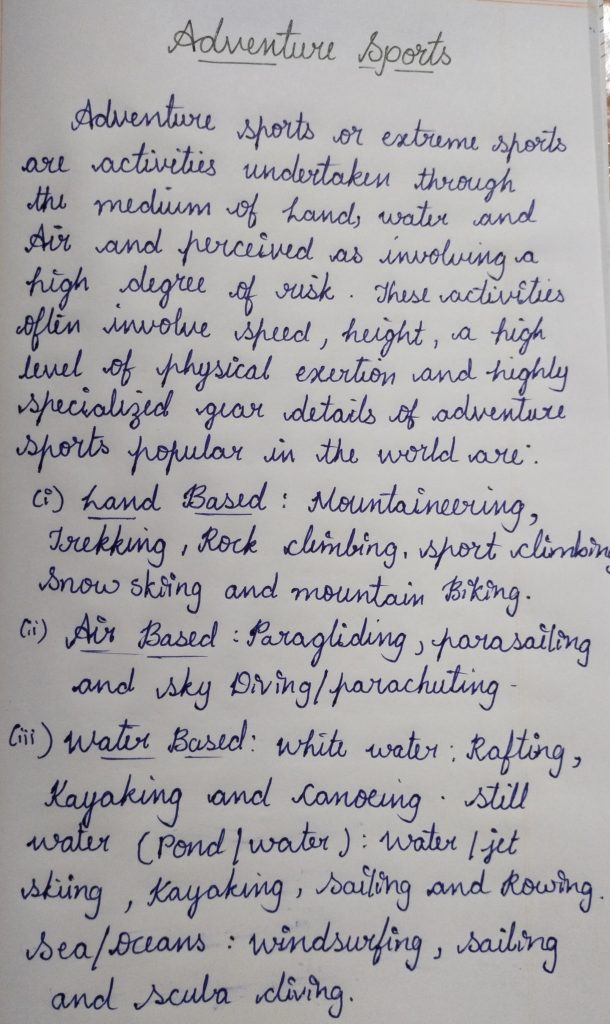 Adventure Sports
Adventure sports or extreme sports
are activities undertaken through
the medium of Land, water and
Air and perceived as involving a
high degree of risk. These activities
often involve speed, height, a high
level of physical exertion and highly
specialized gear details of adventure
sports popular in the world are:
(i) Land Based : Mountaineering,
Trekking, Rock climbing, sport climbing
Snow skiing and mountain Biking.
(ii) Air Based : Paragliding, parasailing
and sky Diving/parachuting -
(iii) Water Based: White water: Rafting,
Kayaking and Canoeing. Still
water (Pond/water): Water/jet
skiing, Kayaking, Sailing and Rowing.
Sea/Oceans : windsurfing, sailing
and scuba diving.